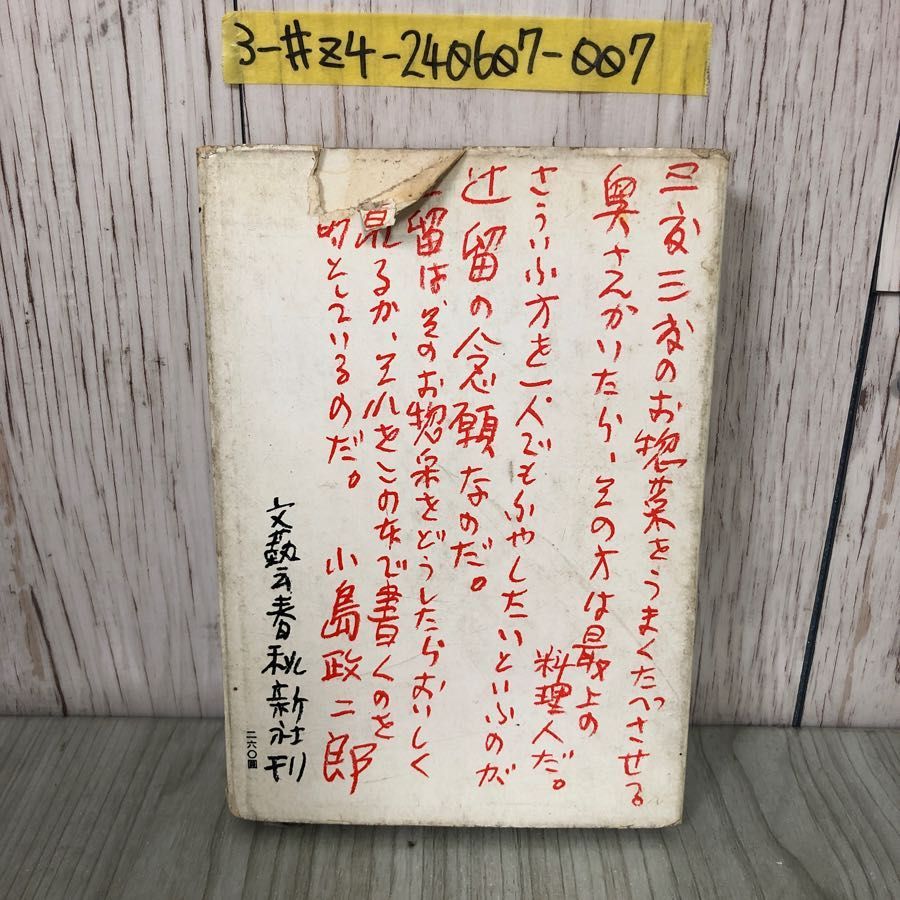 3-#Z4-240607-007
三度三度のお惣菜をうまくたべさせる
奥さんがいたら、その方は最上の
料理人だ。
さういふ方を一人でもふやしたいといふのが
辻留の念願なのだ。
留は、そのお惣菜をどうしたらおいしく
るか、それをこの本で書くのを
的としているのだ。
小島政二郎
文藝春秋新社刊
二六〇圓